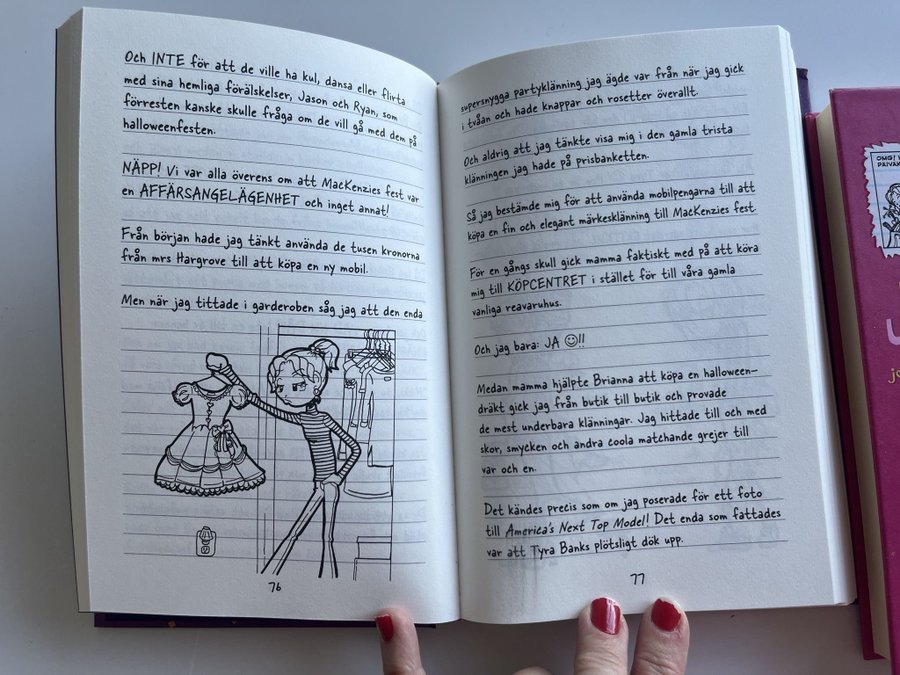 Och INTE för att de ville ha kul, dansa eller flirta
med sina hemliga förälskelser, Jason och Ryan, som
förresten kanske skulle fråga om de vill gå med dem på
halloweenfesten.
NÄPP! Vi var alla överens om att MacKenzies fest var
en AFFÄRSANGELÄGENHET och inget annat!
Från början hade jag tänkt använda de tusen kronorna
från mrs Hargrove till att köpa en ny mobil.
Men när jag tittade i garderoben såg jag att den enda
76
supersnygga partyklänning jag ägde var från när jag gick
i tvåan och hade knappar och rosetter överallt.
Och aldrig att jag tänkte visa mig i den gamla trista
klänningen jag hade på prisbanketten.
Så jag bestämde mig för att använda mobilpengarna till att
köpa en fin och elegant märkesklänning till MacKenzies fest
För en gångs skull gick mamma faktiskt med på att köra
mig till KÖPCENTRET i stället för till våra gamla
vanliga reavaruhus.
Och jag bara: JA ☺!!
Medan mamma hjälpte Brianna att köpa en halloween-
dräkt gick jag från butik till butik och provade
de mest underbara klänningar. Jag hittade till och med
skor, smycken och andra coola matchande grejer till
var och en.
Det kändes precis som om jag poserade för ett foto
till America's Next Top Model! Det enda som fattades
var att Tyra Banks plötsligt dök upp.
77
OMG!